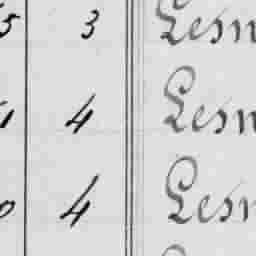 5 3 Lesn
1 4 Lesn
0 4 Lesn